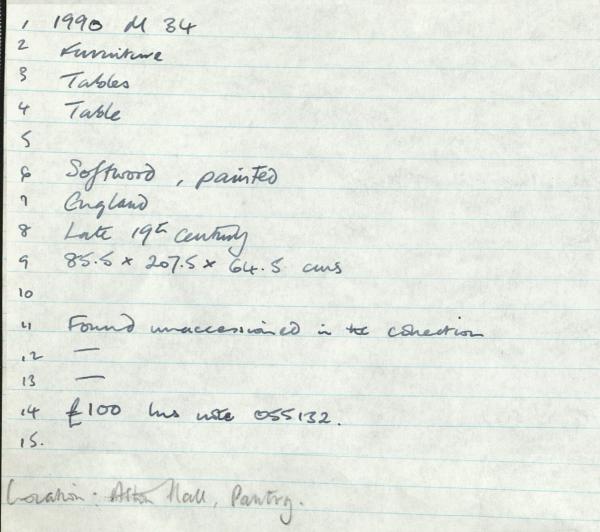 1 1990 M 34
2 Furniture
3 Tables
4 Table
5
6 Softwood, painted
7 England
8 Late 19th century
9 85.5 x 207.5 x 64.5 cms
10
11 Found unaccessioned in the collection
12 —
13 —
14 £100 Ins note 055132.
15.
Location: Aston Hall, Pantry.